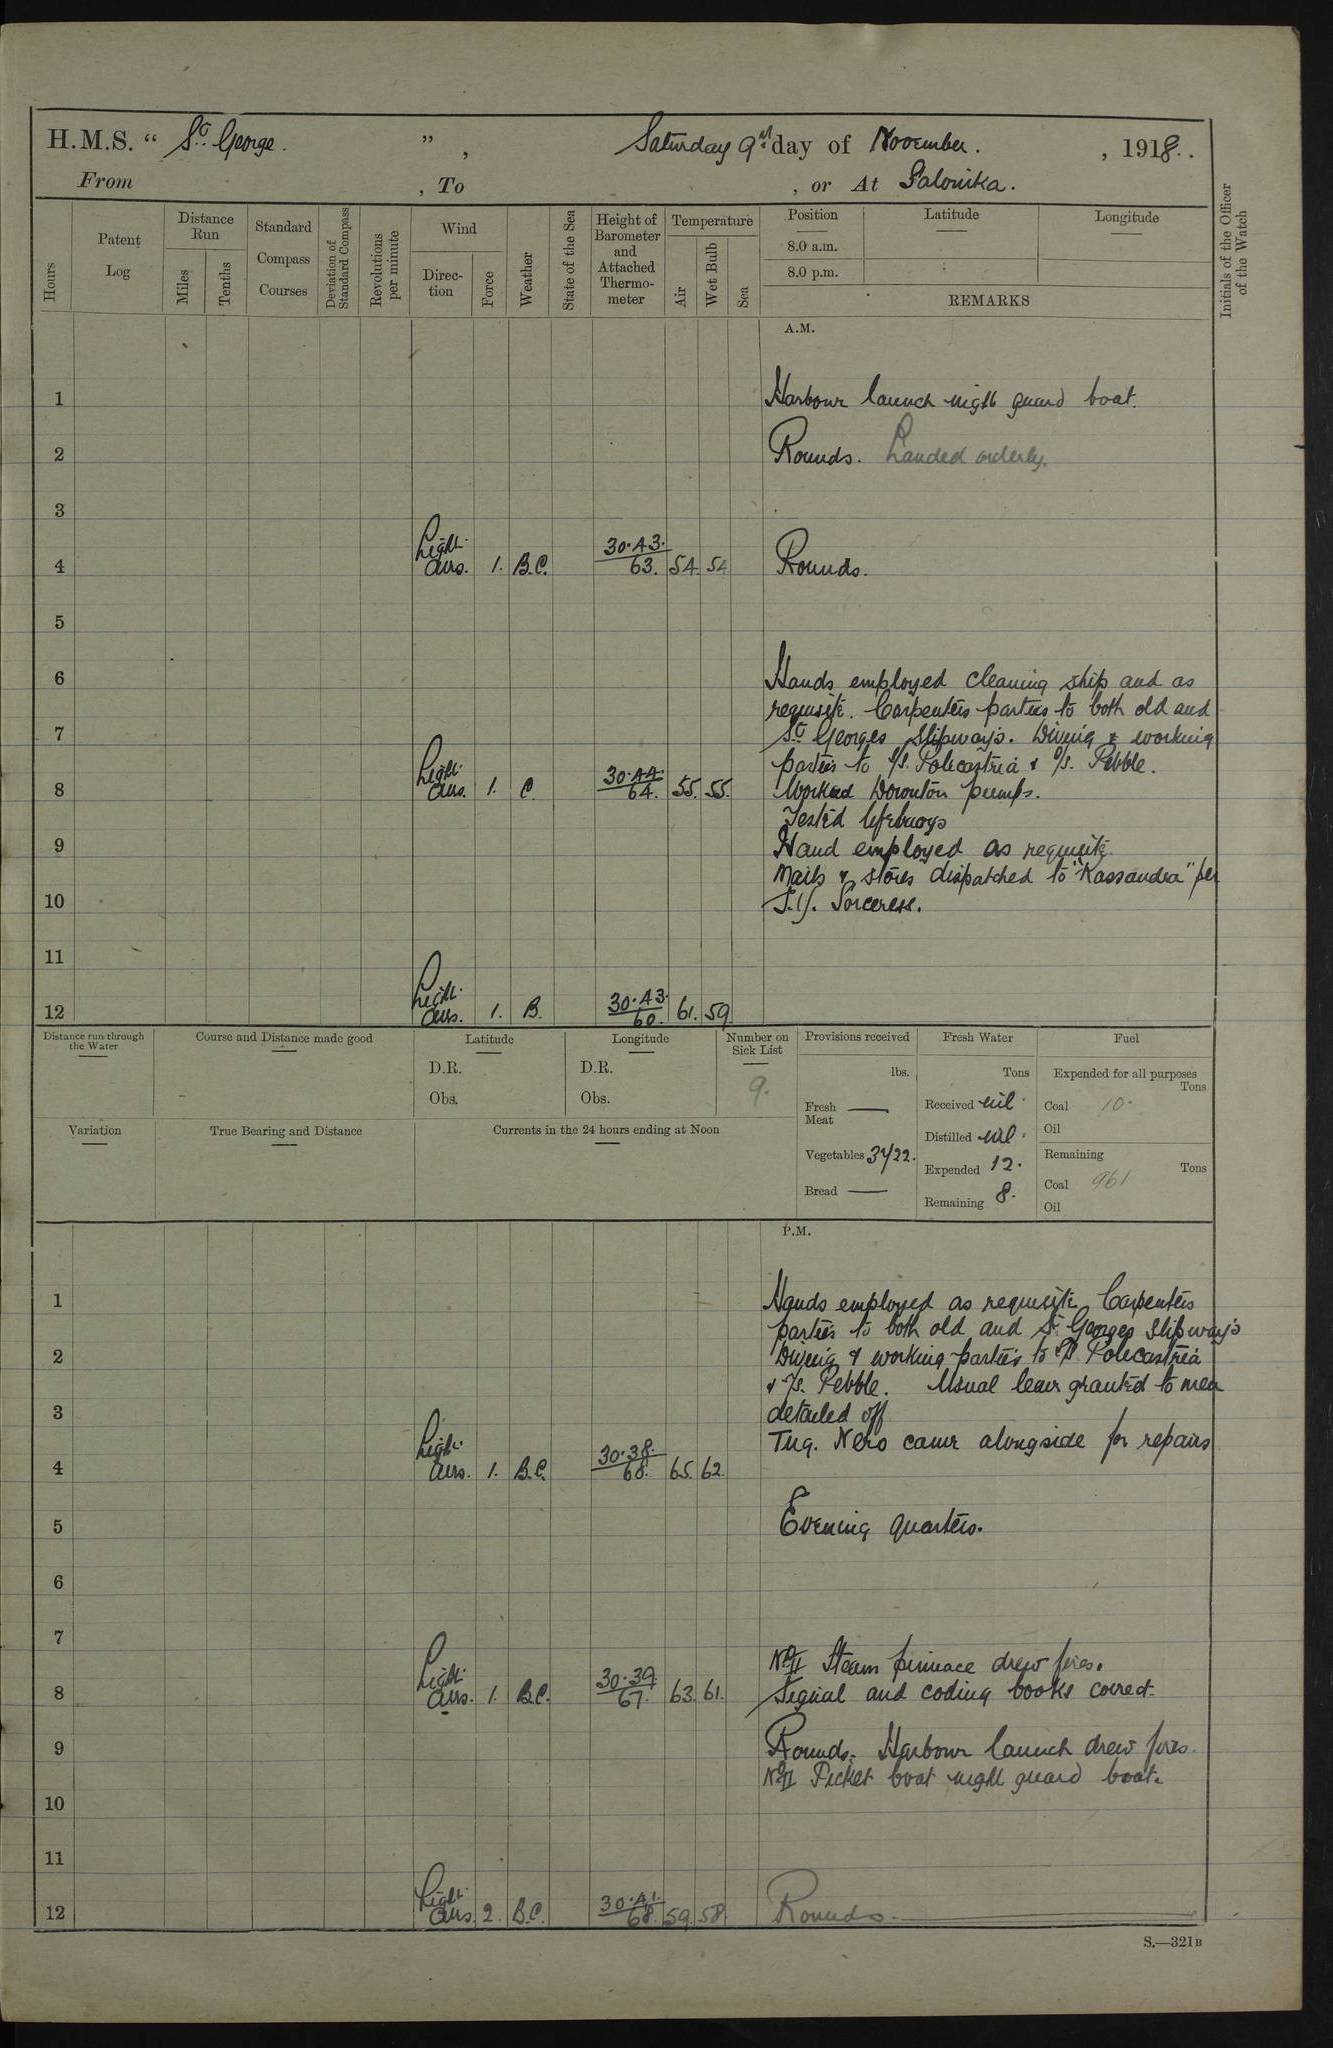 H.M.S. " St. George. ", Saturday 9th day of November. , 1918.
From , To , or At Salonika.
Hours
Patent Log
Distance Run
Miles
Tenths
Standard Compass Courses
Deviation of Standard Compass
Revolutions per minute
Wind
Direction
Force
Weather
State of the Sea
Height of Barometer and Attached Thermometer
Temperature
Air
Wet Bulb
Sea
Position
Latitude
Longitude
8.0 a.m.
8.0 p.m.
REMARKS
Initials of the Officer of the Watch
A.M.
1 Harbour launch night guard boat.
2 Rounds. Landed orderly.
3
4 Light airs. 1. B.C. 30.43. 63. 54. 54 Rounds.
5
6 Hands employed cleaning ship and as
requisite. Carpenters parties to both old and
7 St Georges Slipways. Diving & working
parties to S/S. Policastria & S/S. Pebble.
8 Light airs. 1. C. 30.44. 64. 55. 55. Worked Downton pumps.
Tested lifebuoys
9 Hand employed as requisite.
Mails & stores dispatched to "Kassandra" per
10 S.Y. Sorceress.
11
12 Light airs. 1. B. 30.43. 60. 61. 59.
Distance run through the Water
Course and Distance made good
Latitude
D.R.
Obs.
Longitude
D.R.
Obs.
Number on Sick List
9.
Provisions received
lbs.
Fresh Meat —
Vegetables 3422.
Bread —
Fresh Water
Tons
Received nil.
Distilled nil.
Expended 12.
Remaining 8.
Fuel
Expended for all purposes
Tons
Coal 10.
Oil
Remaining
Tons
Coal 961
Oil
Variation
True Bearing and Distance
Currents in the 24 hours ending at Noon
P.M.
1 Hands employed as requisite Carpenters
parties to both old and St Georges Slipways
2 Diving & working parties to S/S. Policastria
& S/S. Pebble. Usual leave granted to men
3 detailed off
Tug. Nero came alongside for repairs
4 Light airs. 1. B.C. 30.38. 68. 65. 62.
5 Evening quarters.
6
7
No II Steam pinnace drew fires.
8 Light airs. 1. B.C. 30.39. 67. 63. 61. Signal and coding books correct.
9 Rounds. Harbour launch drew fires.
No II Picket boat night guard boat.
10
11
12 Light airs. 2. B.C. 30.41. 68. 59. 58. Rounds.
S.—321B